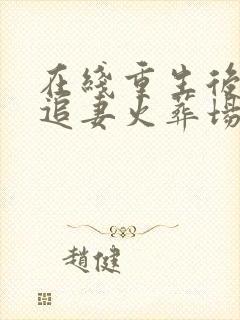 在綫重生後
追妻火葬場
趙健